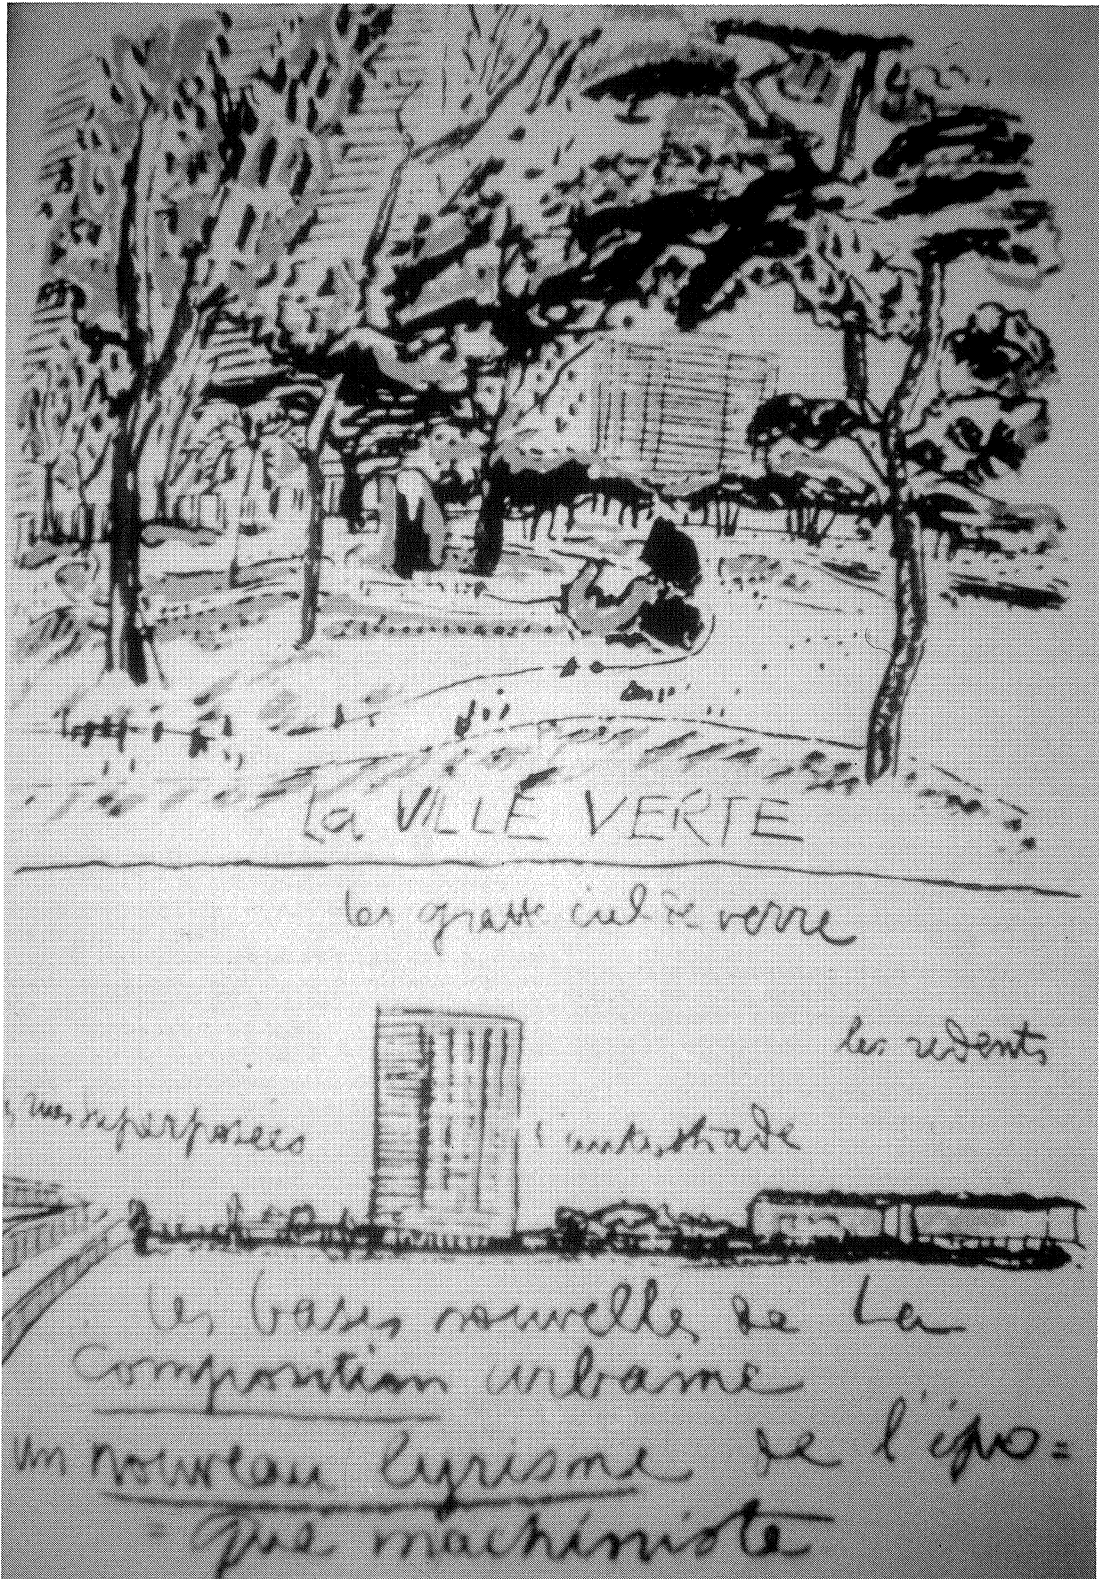 La VILLE VERTE
les gratte ciel de verre
les redents
rues superposées
l'autostrade
les bases nouvelles de La
composition urbaine
un nouveau lyrisme de l'épo=
=que machiniste